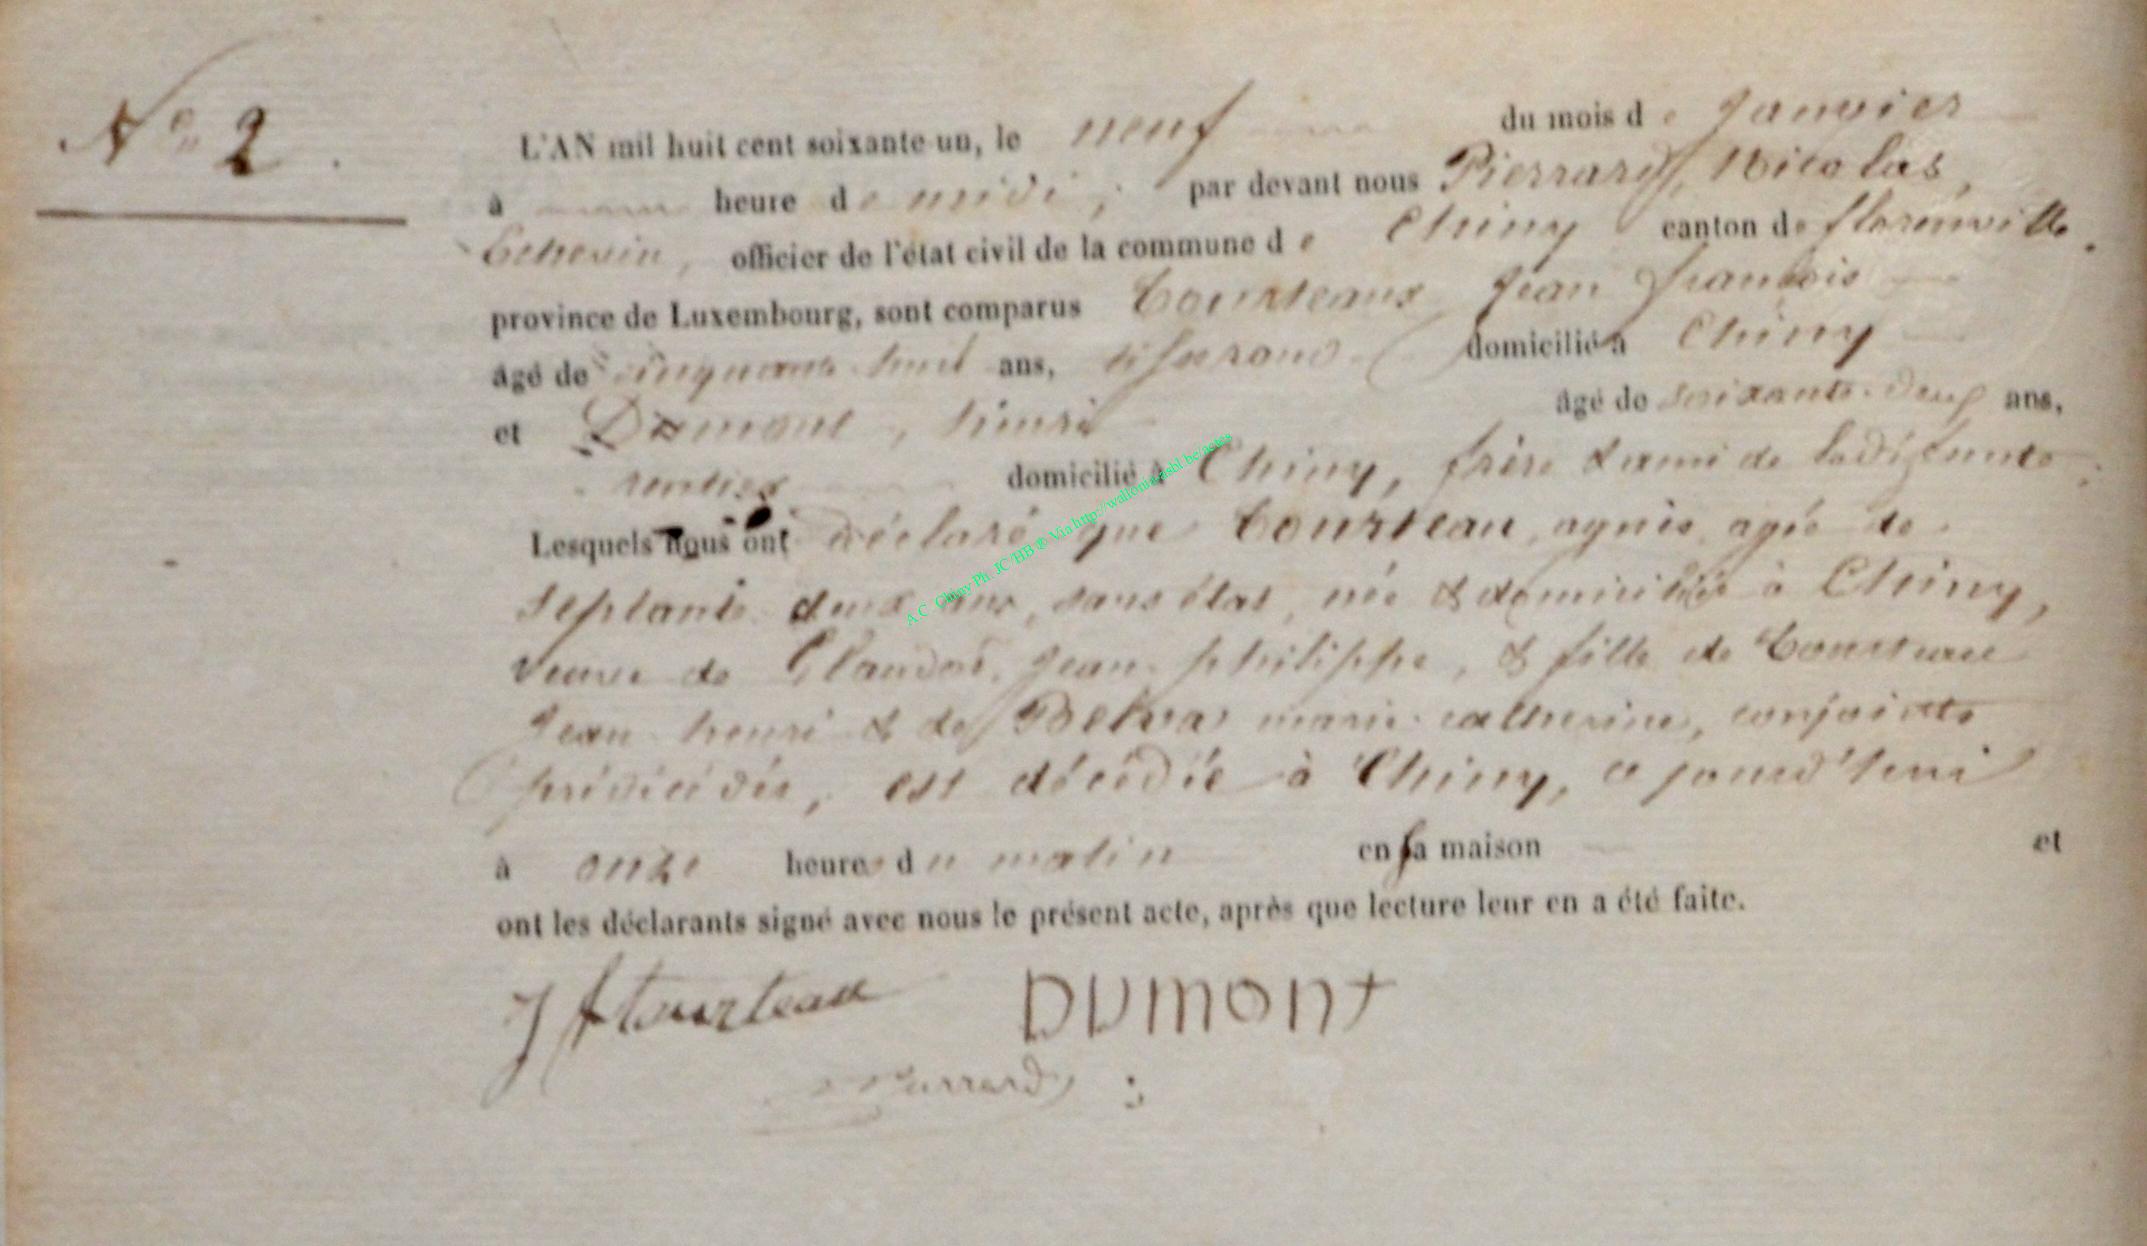 N° 2
L'AN mil huit cent soixante-un, le neuf du mois de Janvier
à heure de midi, par devant nous Pierrard, Nicolas,
Echevin, officier de l'état civil de la commune de Chiny canton de florenville.
province de Luxembourg, sont comparus Courteaux Jean françois
âgé de cinquante huit ans, domicilié à Chiny
et Dumont, henri âgé de soixante-deux ans,
rentier domicilié à Chiny, frère & ami de la défunte.
Lesquels nous ont déclaré que Courteau, agnès, agée de
septante deux ans, sans état, née & domiciliée à Chiny,
veuve de jean philippe, & fille de Courteau
Jean henri & de marie catherine, conjoints
prédécédés, est décédée à Chiny, ce jourd'hui
à onze heures du matin en sa maison et
ont les déclarants signé avec nous le présent acte, après que lecture leur en a été faite.
J f Courteau DUMONT
Pierrard
A.C. Chiny Ph. JC HB ® Via http://wallonia-asbl.be/actes